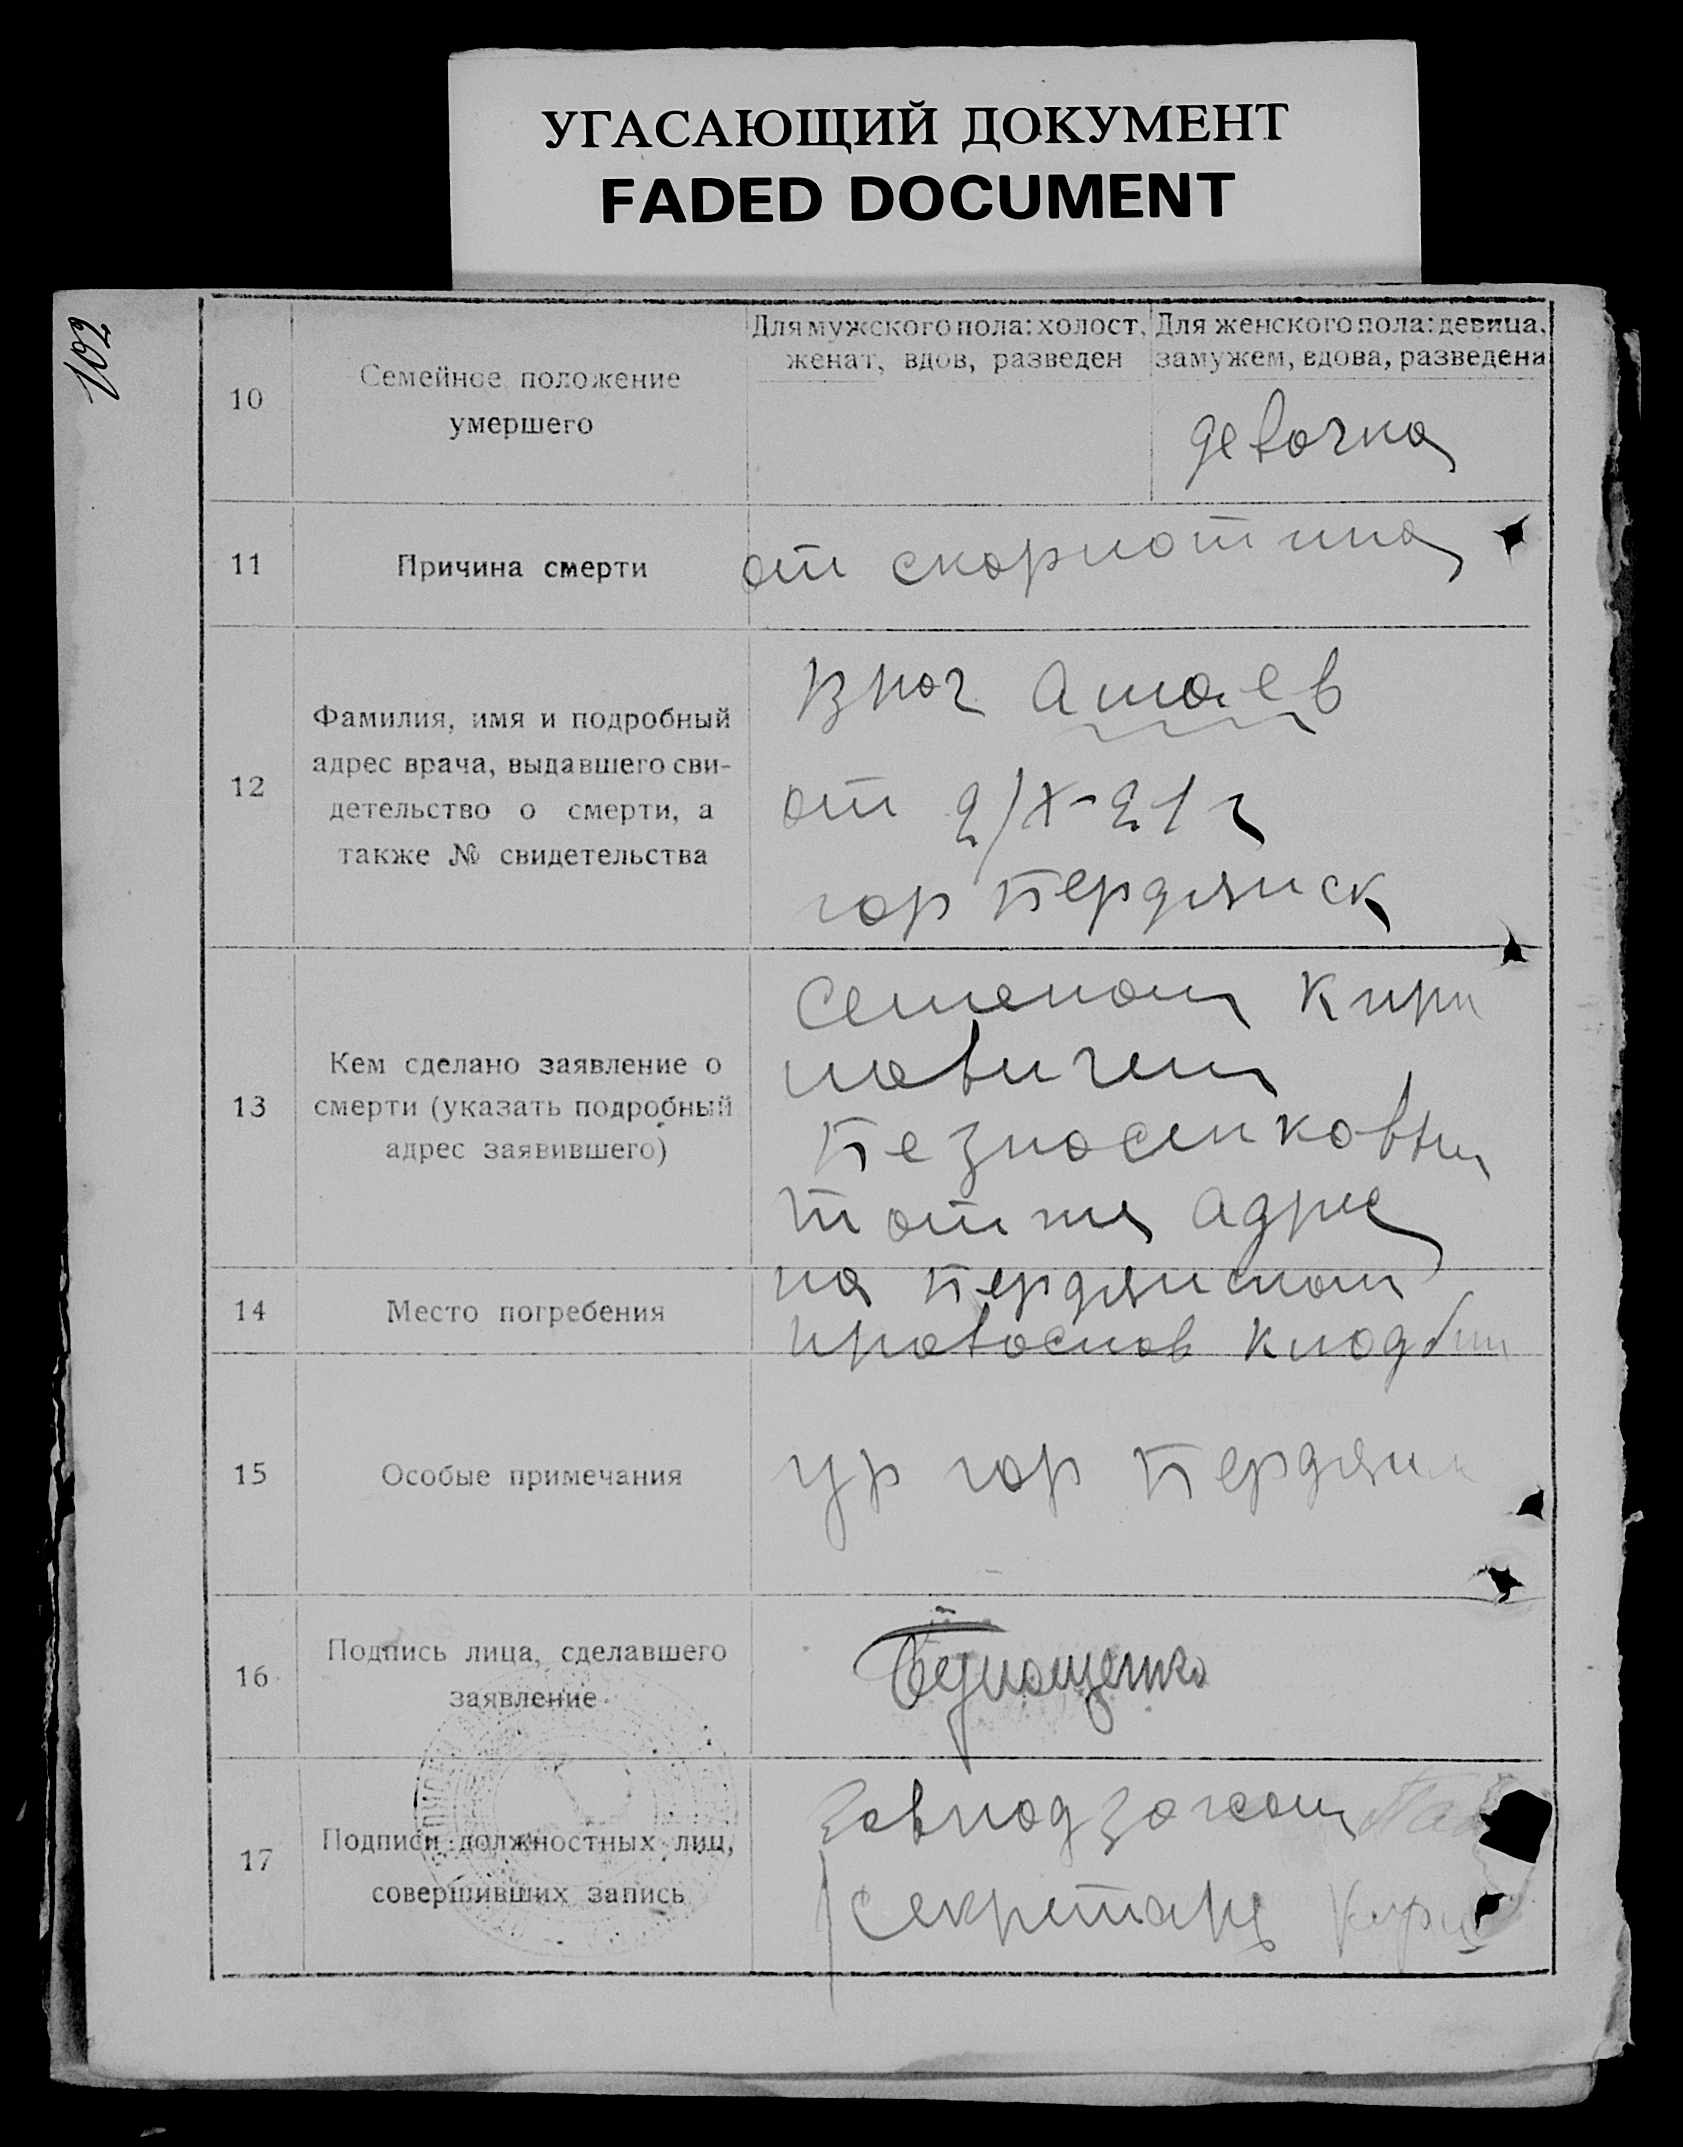 УГАСАЮЩИЙ ДОКУМЕНТ
FADED DOCUMENT
102
10
Семейное положение
умершего
Для мужского пола: холост,
женат, вдов, разведен
Для женского пола: девица,
замужем, вдова, разведена
девочка
11
Причина смерти
от скорлотина
12
Фамилия, имя и подробный
адрес врача, выдавшего сви-
детельство о смерти, а
также № свидетельства
Врач
от 2/X-21 г
гор Бердянск
13
Кем сделано заявление о
смерти (указать подробный
адрес заявившего)
Семеном Кири
ловичем
тот же адрес
14
Место погребения
на Бердянском
православ кладбищ
15
Особые примечания
ур гор Бердянск
16
Подпись лица, сделавшего
заявление
17
Подписи должностных лиц,
совершивших запись
Завподзагсом
Секретарь